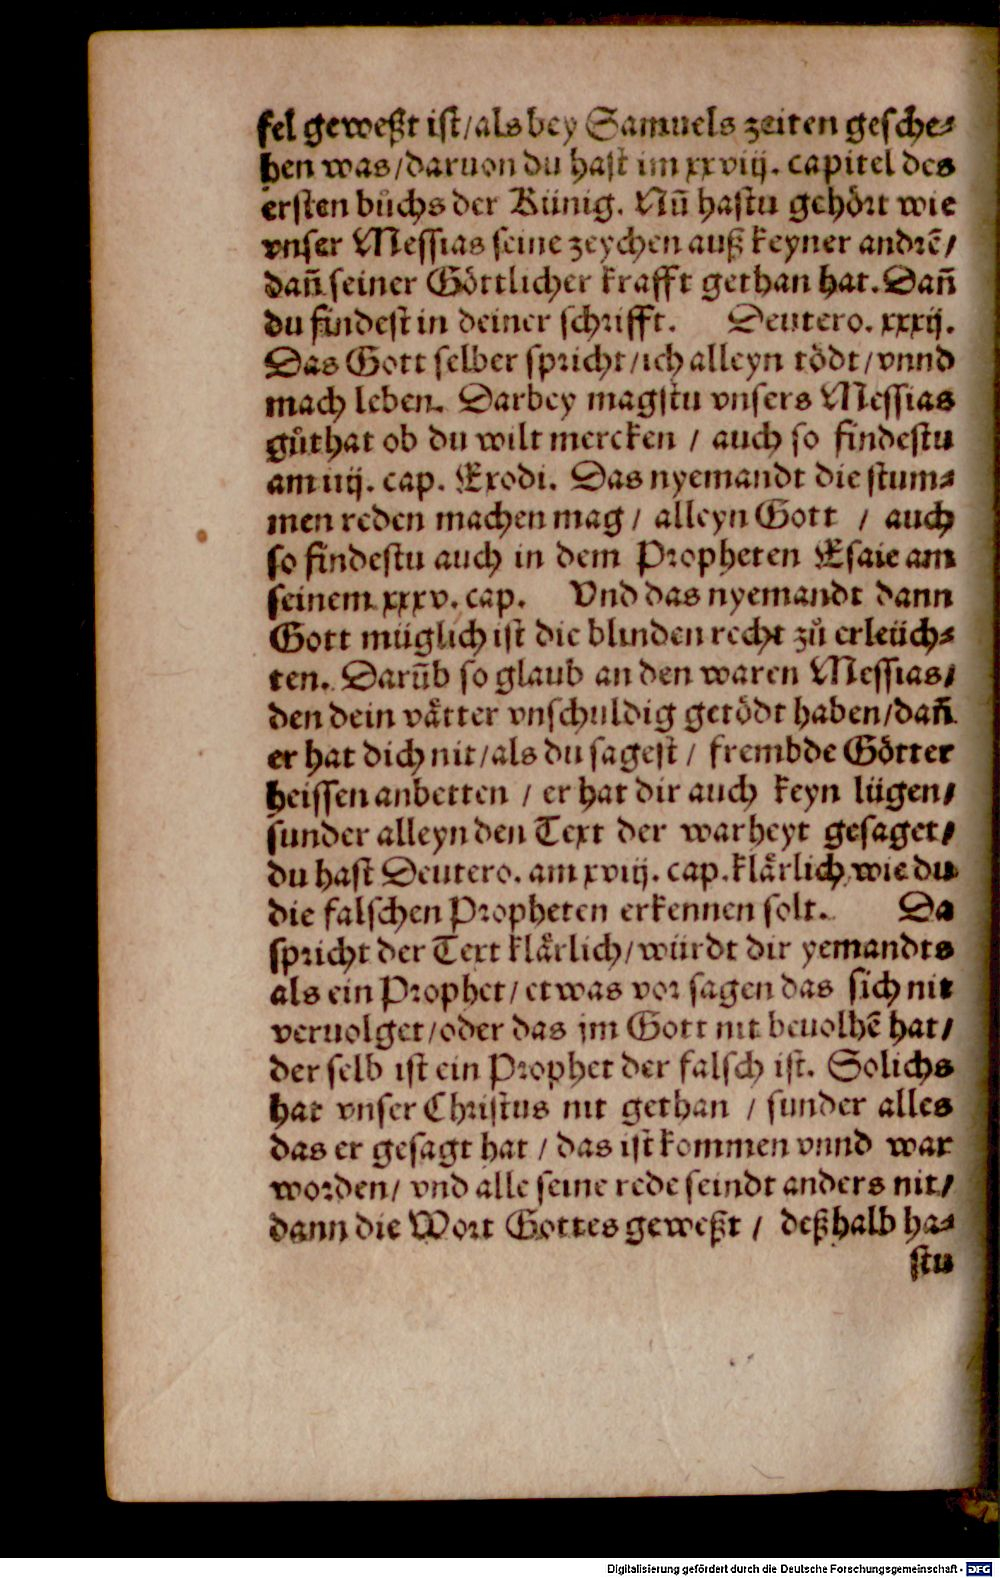 fel geweßt ist/als bey Samuels zeiten gesche⸗
hen was/daruon du hast im xxviij. capitel des
ersten bůchs der Künig. Nũ hastu gehört wie
vnser Messias seine zeychen auß keyner andrẽ/
dañ seiner Göttlicher krafft gethan hat. Dañ
du findest in deiner schrifft. Deutero. xxxij.
Das Gott selber spricht/ich alleyn tödt/vnnd
mach leben. Darbey magstu vnsers Messias
gůthat ob du wilt mercken / auch so findestu
am iiij. cap. Exodi. Das nyemandt die stum⸗
men reden machen mag/ alleyn Gott / auch
so findestu auch in dem Propheten Esaie am
seinem xxxv. cap. Vnd das nyemandt dann
Gott müglich ist die blinden recht zů erleüch⸗
ten. Darũb so glaub an den waren Messias/
den dein vätter vnschuldig getödt haben/dañ
er hat dich nit/als du sagest / frembde Götter
heissen anbetten / er hat dir auch keyn lügen/
sunder alleyn den Text der warheyt gesaget/
du hast Deutero. am xviij. cap. klärlich wie du
die falschen Propheten erkennen solt. Da
spricht der Text klärlich/würdt dir yemandts
als ein Prophet/etwas vor sagen das sich nit
veruolget/oder das jm Gott nit beuolhẽ hat/
der selb ist ein Prophet der falsch ist. Solichs
hat vnser Christus nit gethan / sunder alles
das er gesagt hat / das ist kommen vnnd war
worden/ vnd alle seine rede seindt anders nit/
dann die Wort Gottes geweßt / deßhalb ha⸗
stu
Digitalisierung gefördert durch die Deutsche Forschungsgemeinschaft - DFG